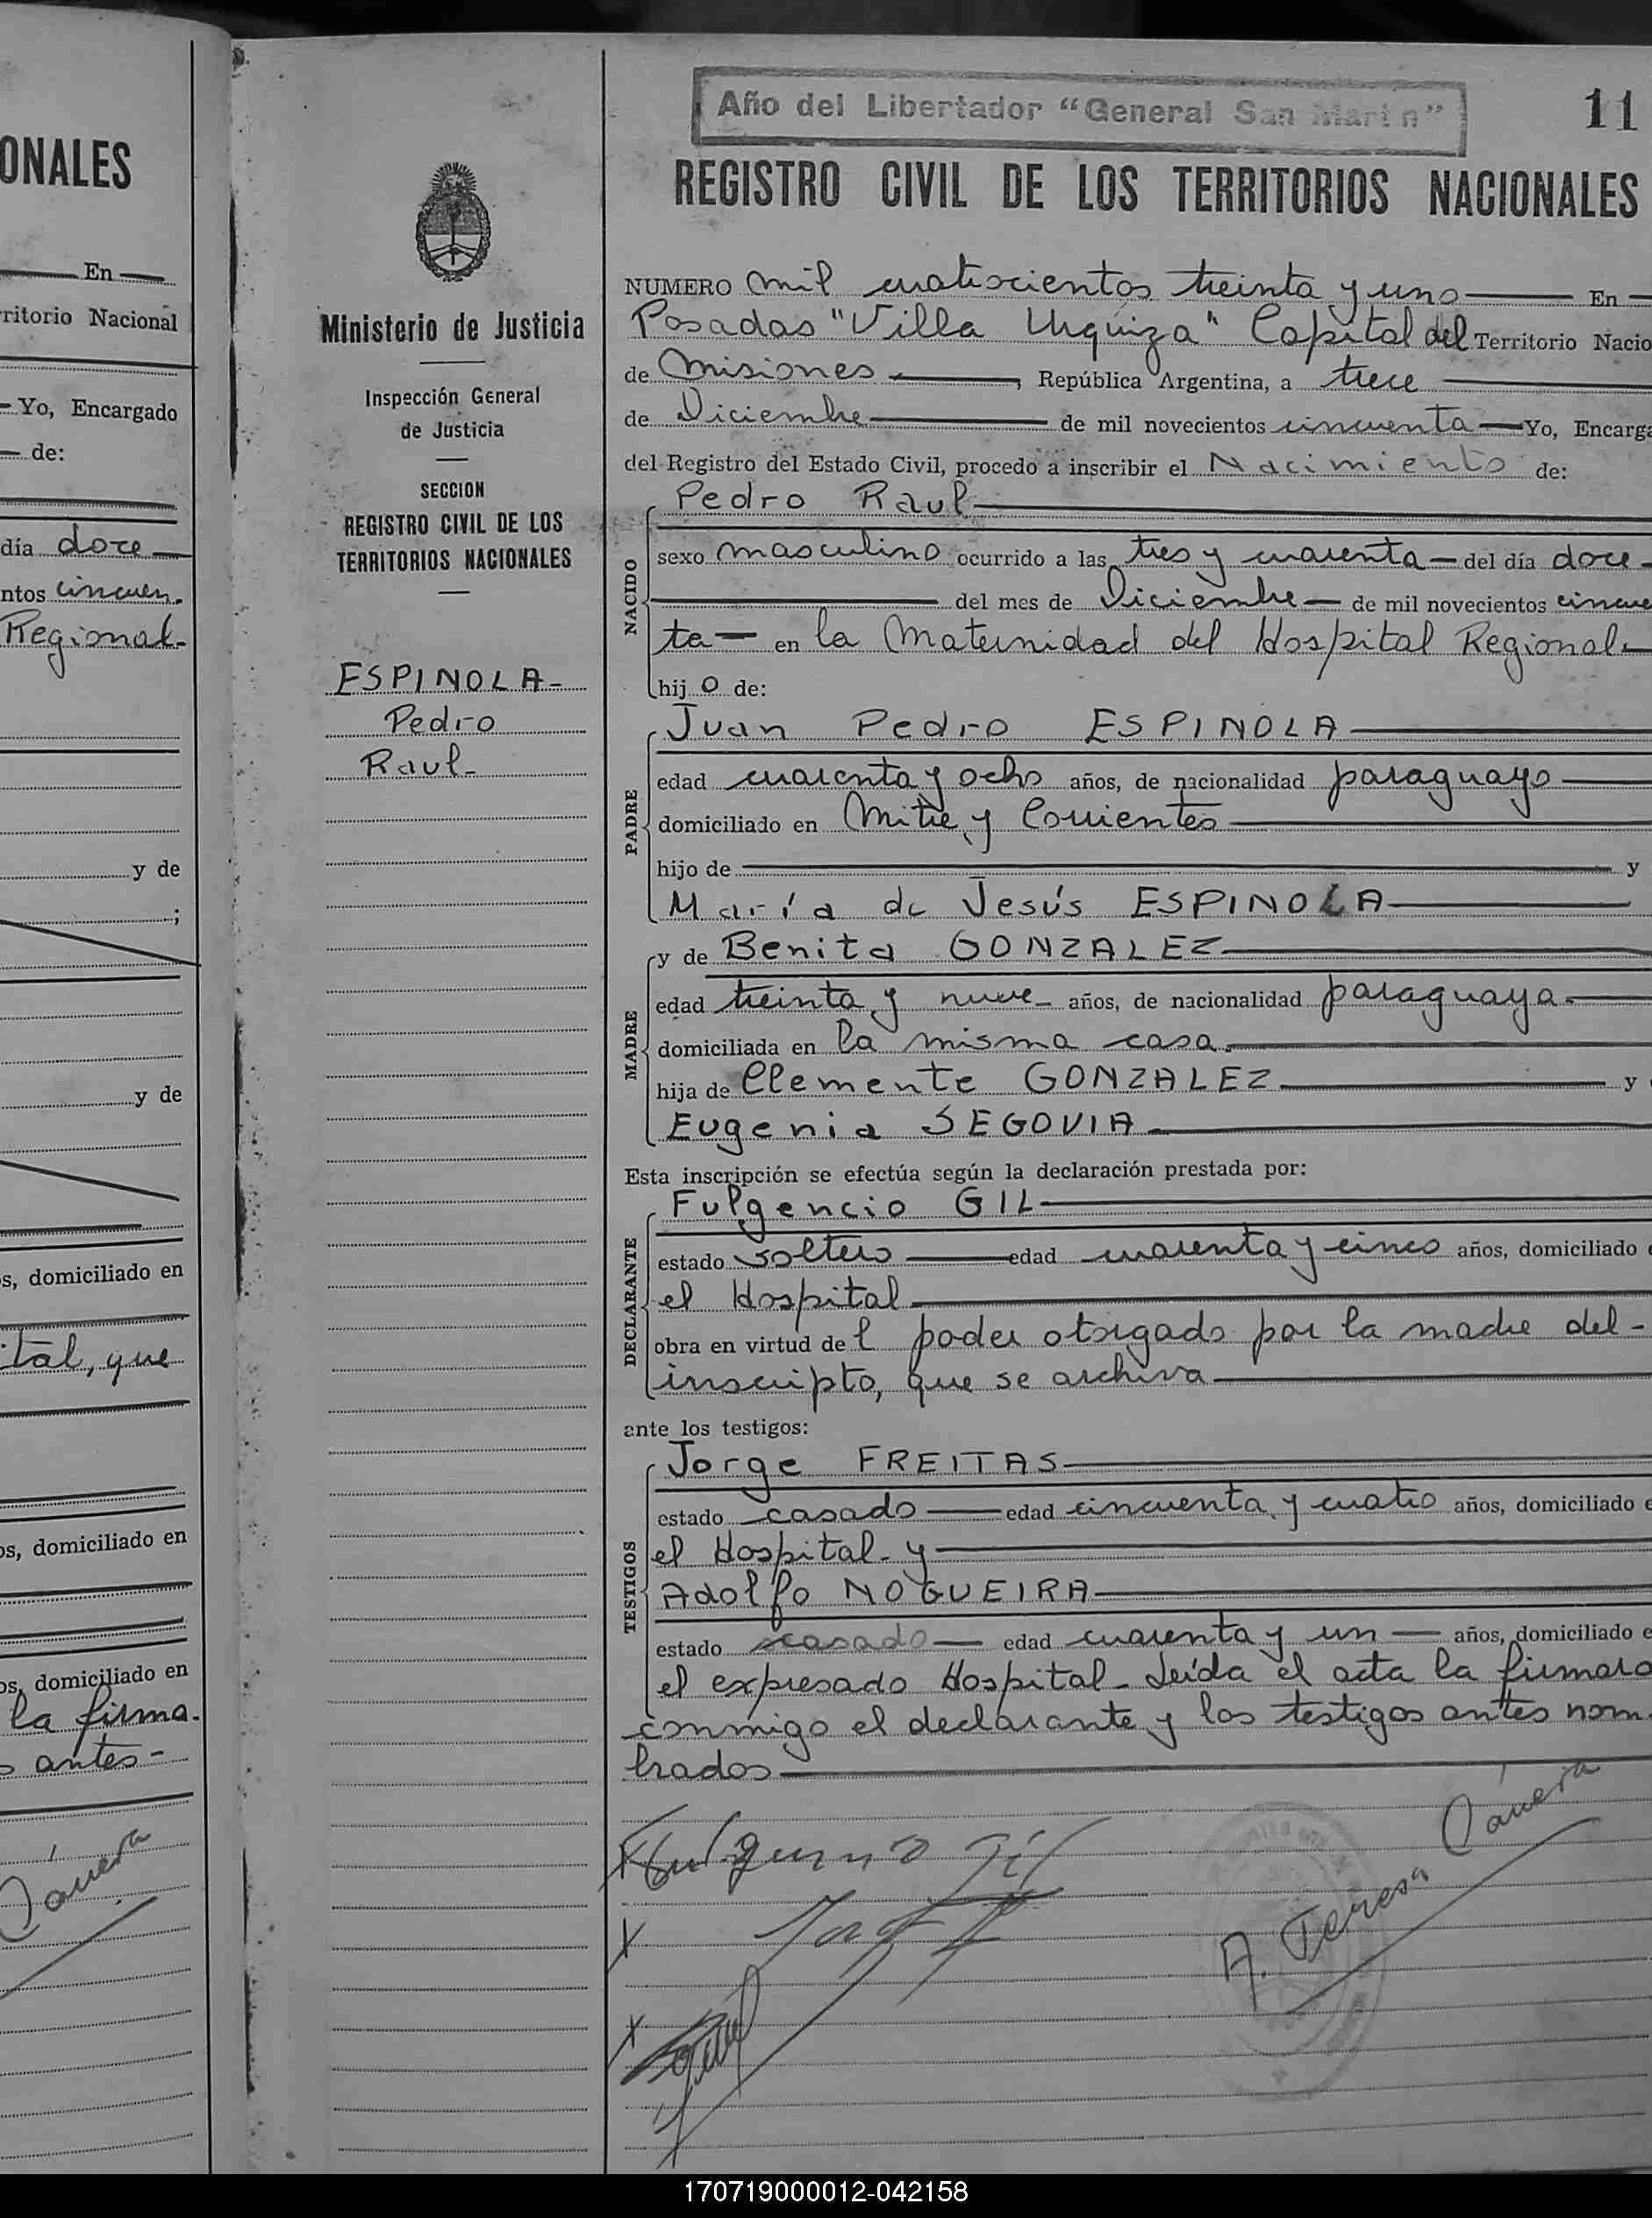 ONALES
En
rritorio Nacional
Yo, Encargado
de:
día doce
ntos cincuen-
Regional-
y de
;
y de
s, domiciliado en
ital, que
os, domiciliado en
os, domiciliado en
la firma-
antes-
Ministerio de Justicia
Inspección General
de Justicia
SECCION
REGISTRO CIVIL DE LOS
TERRITORIOS NACIONALES
ESPINOLA-
Pedro
Raul-
Año del Libertador “General San Martín”
11
REGISTRO CIVIL DE LOS TERRITORIOS NACIONALES
NUMERO mil cuatrocientos treinta y uno En
Posadas "Villa Urquiza" Capital del Territorio Nacio
de Misiones, República Argentina, a trece
de Diciembre de mil novecientos cincuenta Yo, Encarga
del Registro del Estado Civil, procedo a inscribir el Nacimiento de:
NACIDO
Pedro Raul
sexo masculino ocurrido a las tres y cuarenta del día doce
del mes de Diciembre de mil novecientos cincue
ta en la Maternidad del Hospital Regional
hij o de:
PADRE
Juan Pedro ESPINOLA
edad cuarenta y ocho años, de nacionalidad paraguayo
domiciliado en Mitre y Corrientes
hijo de y
María de Jesús ESPINOLA
MADRE
y de Benita GONZALEZ
edad treinta y nueve años, de nacionalidad paraguaya
domiciliada en la misma casa
hija de Clemente GONZALEZ y
Eugenia SEGOVIA
Esta inscripción se efectúa según la declaración prestada por:
DECLARANTE
Fulgencio GIL
estado soltero edad cuarenta y cinco años, domiciliado e
el Hospital
obra en virtud de l poder otorgado por la madre del-
inscripto, que se archiva
ante los testigos:
TESTIGOS
Jorge FREITAS
estado casado edad cincuenta y cuatro años, domiciliado e
el Hospital- y
Adolfo NOGUEIRA
estado casado edad cuarenta y un años, domiciliado e
el expresado Hospital- Leída el acta la firmaro
conmigo el declarante y los testigos antes nom-
brados
Fulgencio Gil
A. Teresa
170719000012-042158